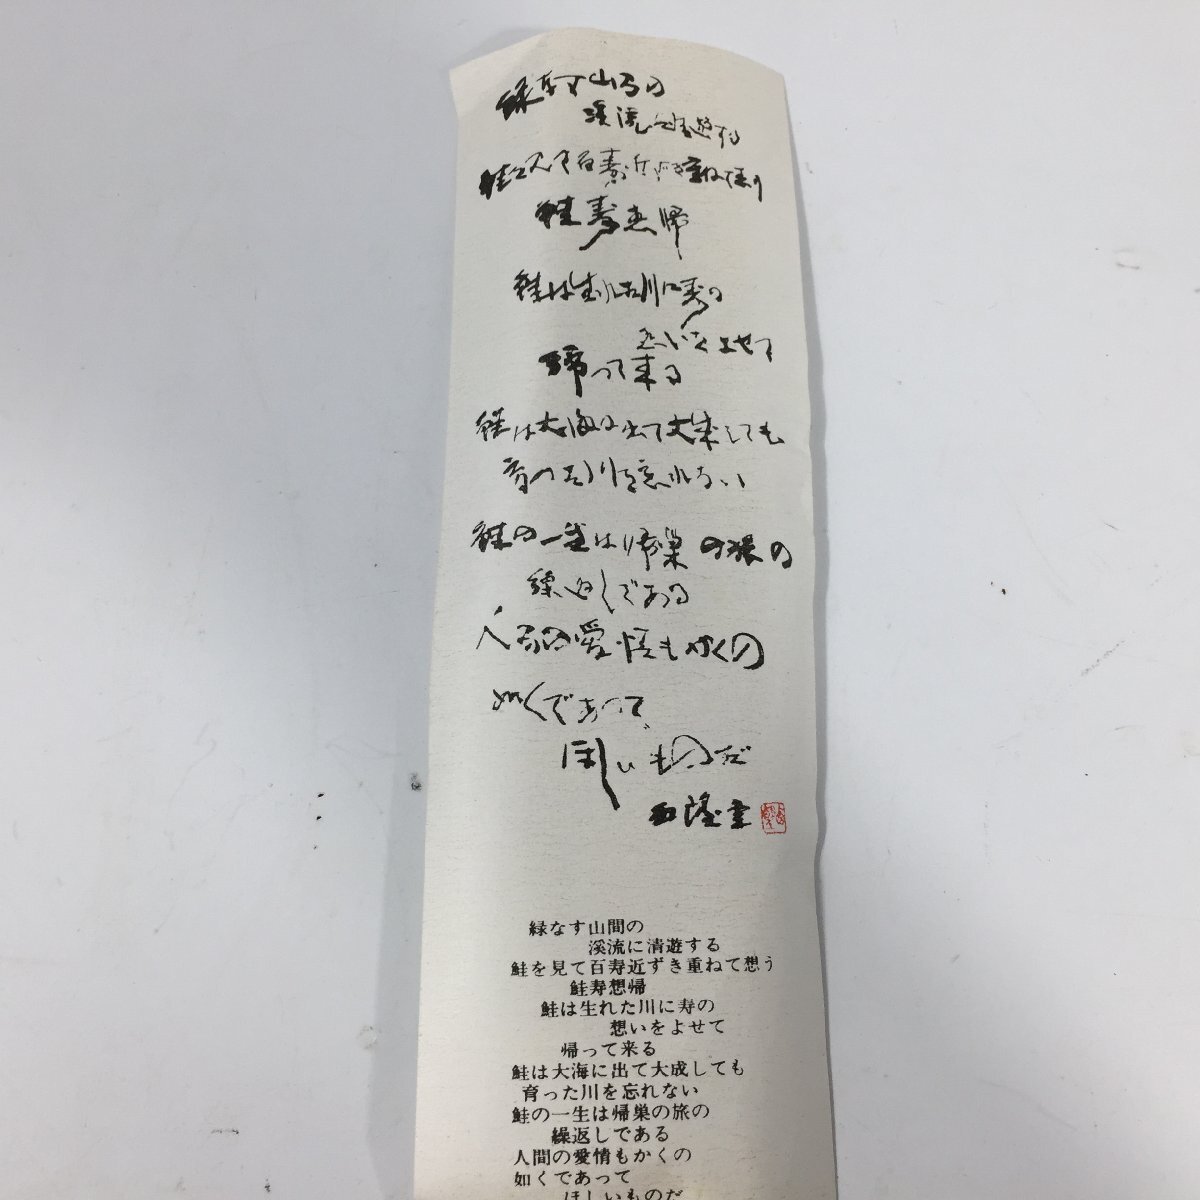 緑なす山間の
渓流に清遊する
鮭を見て百寿近ずき重ねて想う
鮭寿想帰
鮭は生れた川に寿の
想いをよせて
帰って来る
鮭は大海に出て大成しても
育った川を忘れない
鮭の一生は帰巣の旅の
繰返しである
人間の愛情もかくの
如くであって
ほしいものだ
緑なす山間の
渓流に清遊する
鮭を見て百寿近ずき重ねて想う
鮭寿想帰
鮭は生れた川に寿の
想いをよせて
帰って来る
鮭は大海に出て大成しても
育った川を忘れない
鮭の一生は帰巣の旅の
繰返しである
人間の愛情もかくの
如くであって
ほしいものだ